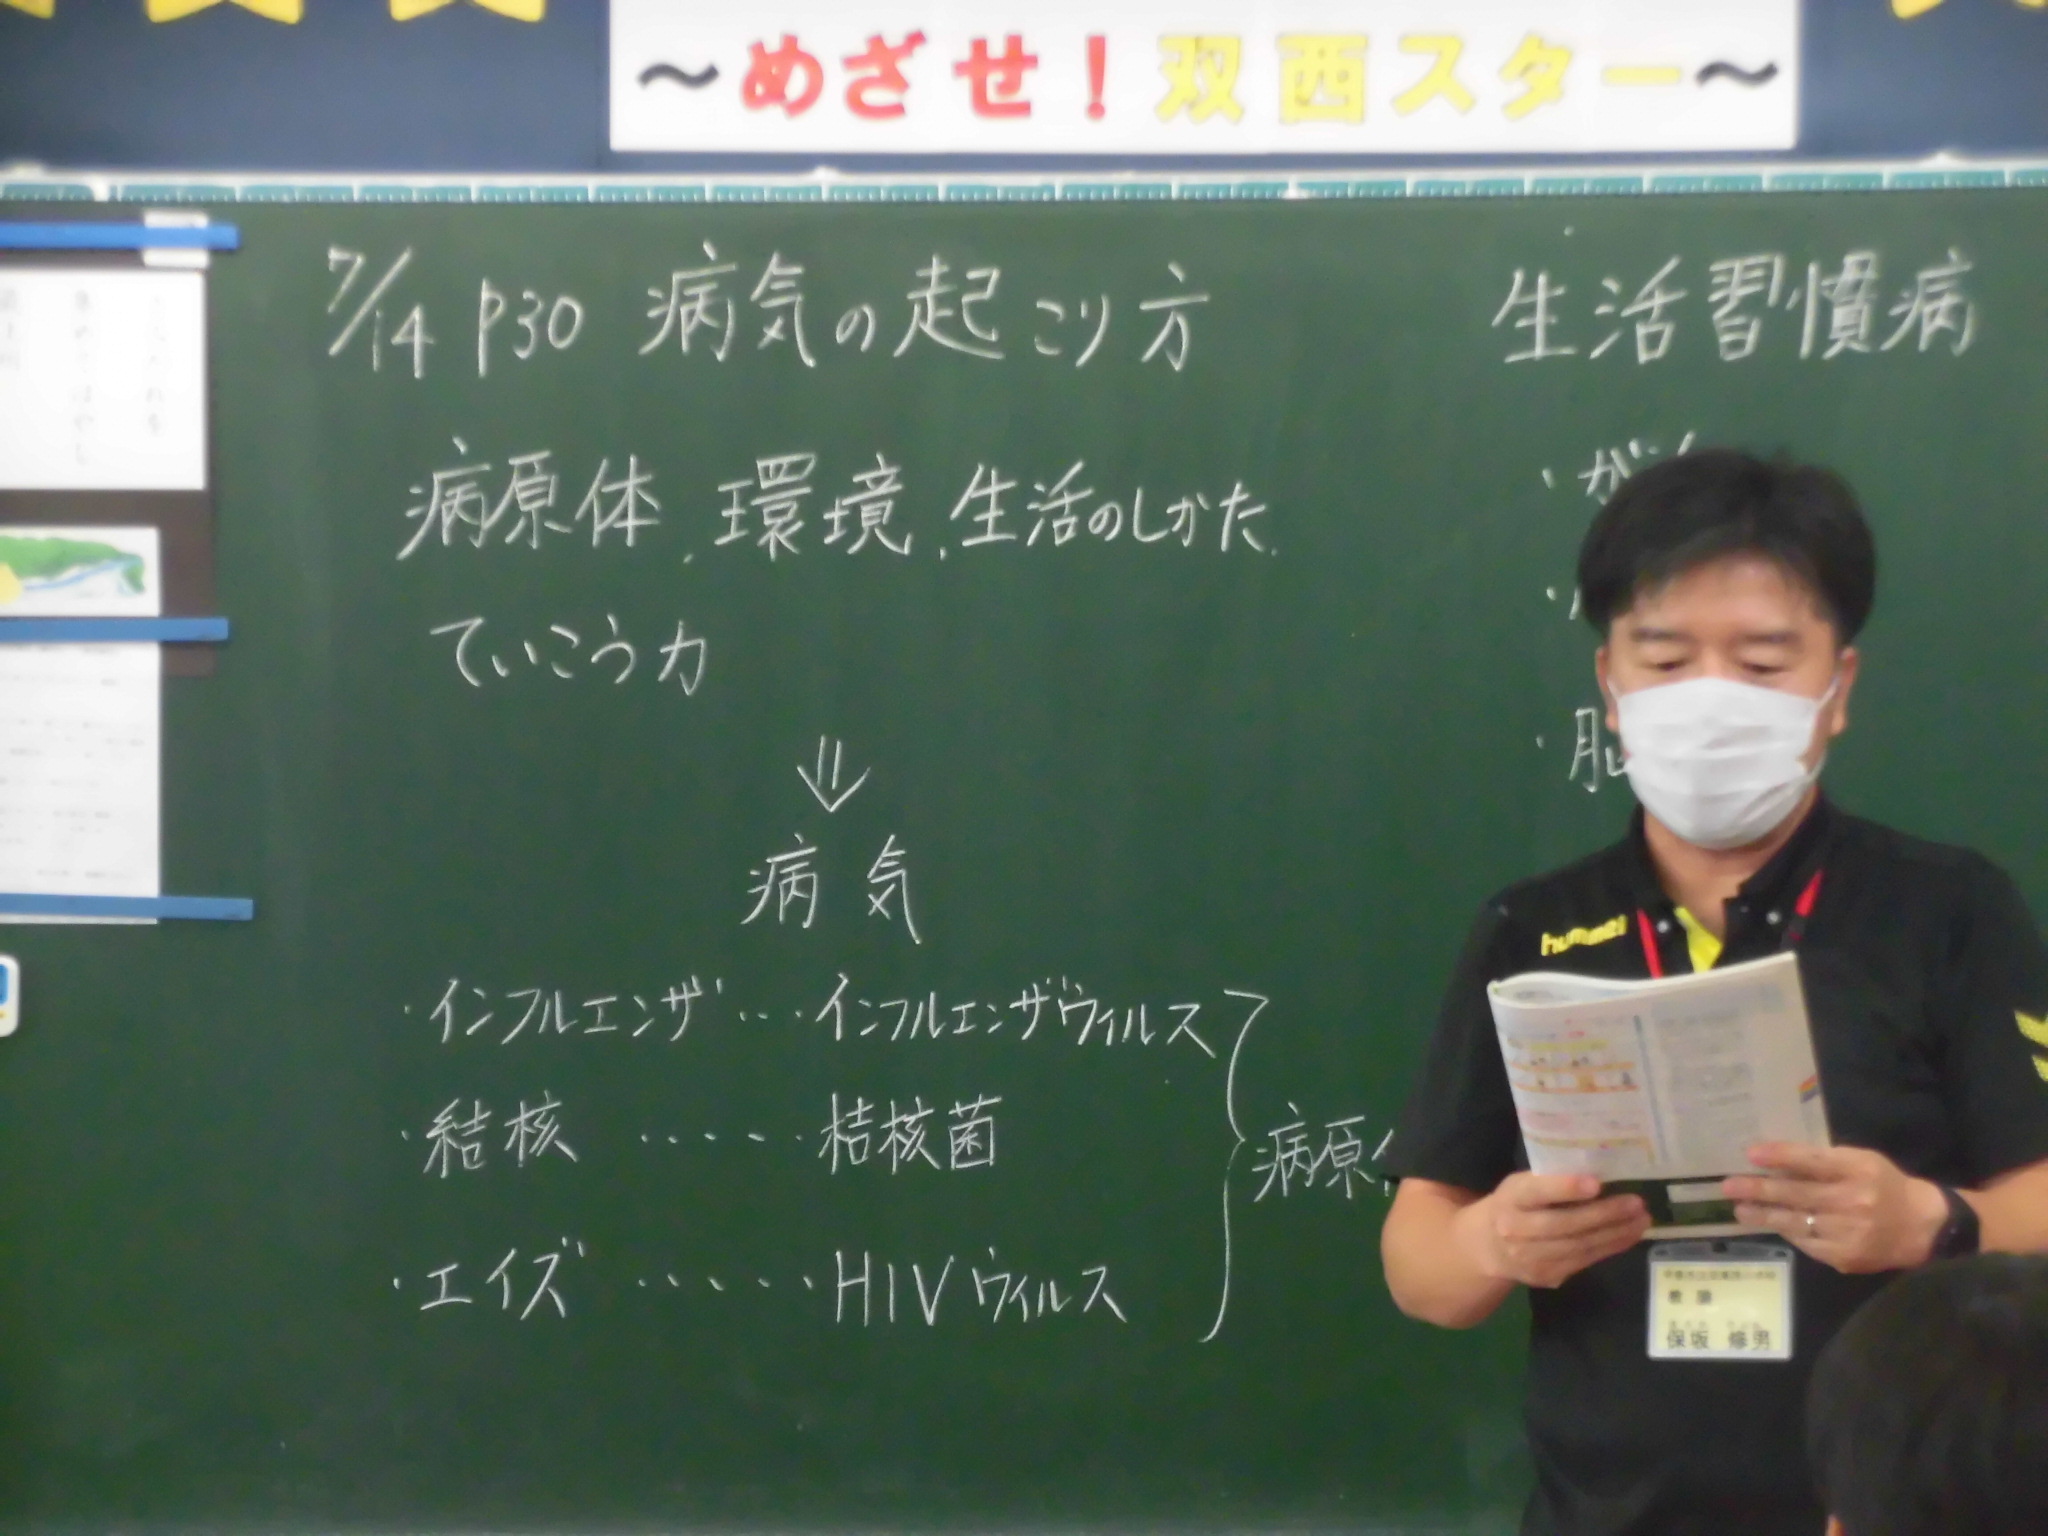 ～めざせ！双西スター～
7/14 p30 病気の起こり方
病原体、環境、生活のしかた、
ていこう力
⇓
病気
・インフルエンザ…インフルエンザウィルス
・結核……桔核菌
・エイズ……HIVウィルス
病原
生活習慣病
・が
・
・脳
hummel
教諭
保坂 修男